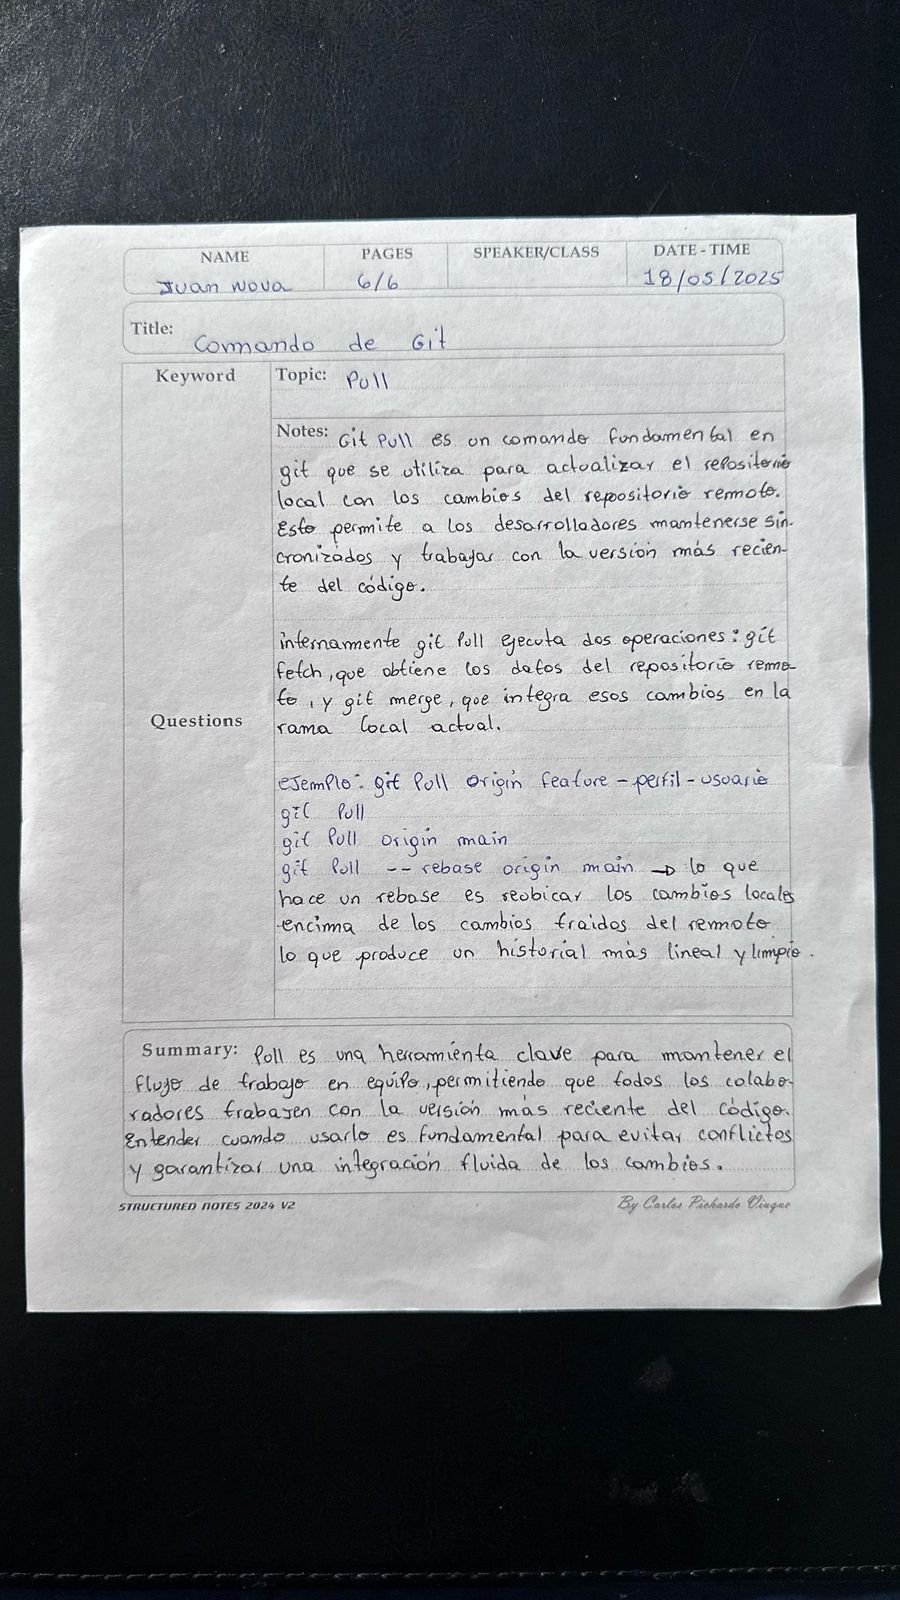 NAME PAGES SPEAKER/CLASS DATE-TIME
Juan Nova 6/6 18/05/2025
Title: Commando de Git
Keyword Topic: Pull
Notes: Git Pull es un comando fundamental en
git que se utiliza para actualizar el repositorio
local con los cambios del repositorio remoto.
Esto permite a los desarrolladores mantenerse sin-
cronizados y trabajar con la versión más recien-
te del código.
internamente git Pull ejecuta dos operaciones: git
fetch, que obtiene los datos del repositorio remo-
to, y git merge, que integra esos cambios en la
Questions
rama local actual.
ejemplo: git Pull origin feature-perfil-usuario
git Pull
git Pull origin main
git Pull --rebase origin main → lo que
hace un rebase es reubicar los cambios locales
encima de los cambios traidos del remoto
lo que produce un historial más lineal y limpio.
Summary: Pull es una herramienta clave para mantener el
flujo de trabajo en equipo, permitiendo que todos los colabo-
radores trabajen con la versión más reciente del código.
Entender cuando usarlo es fundamental para evitar conflictos
y garantizar una integración fluida de los cambios.
STRUCTURED NOTES 2024 V2 By Carlos Pichardo Viuque